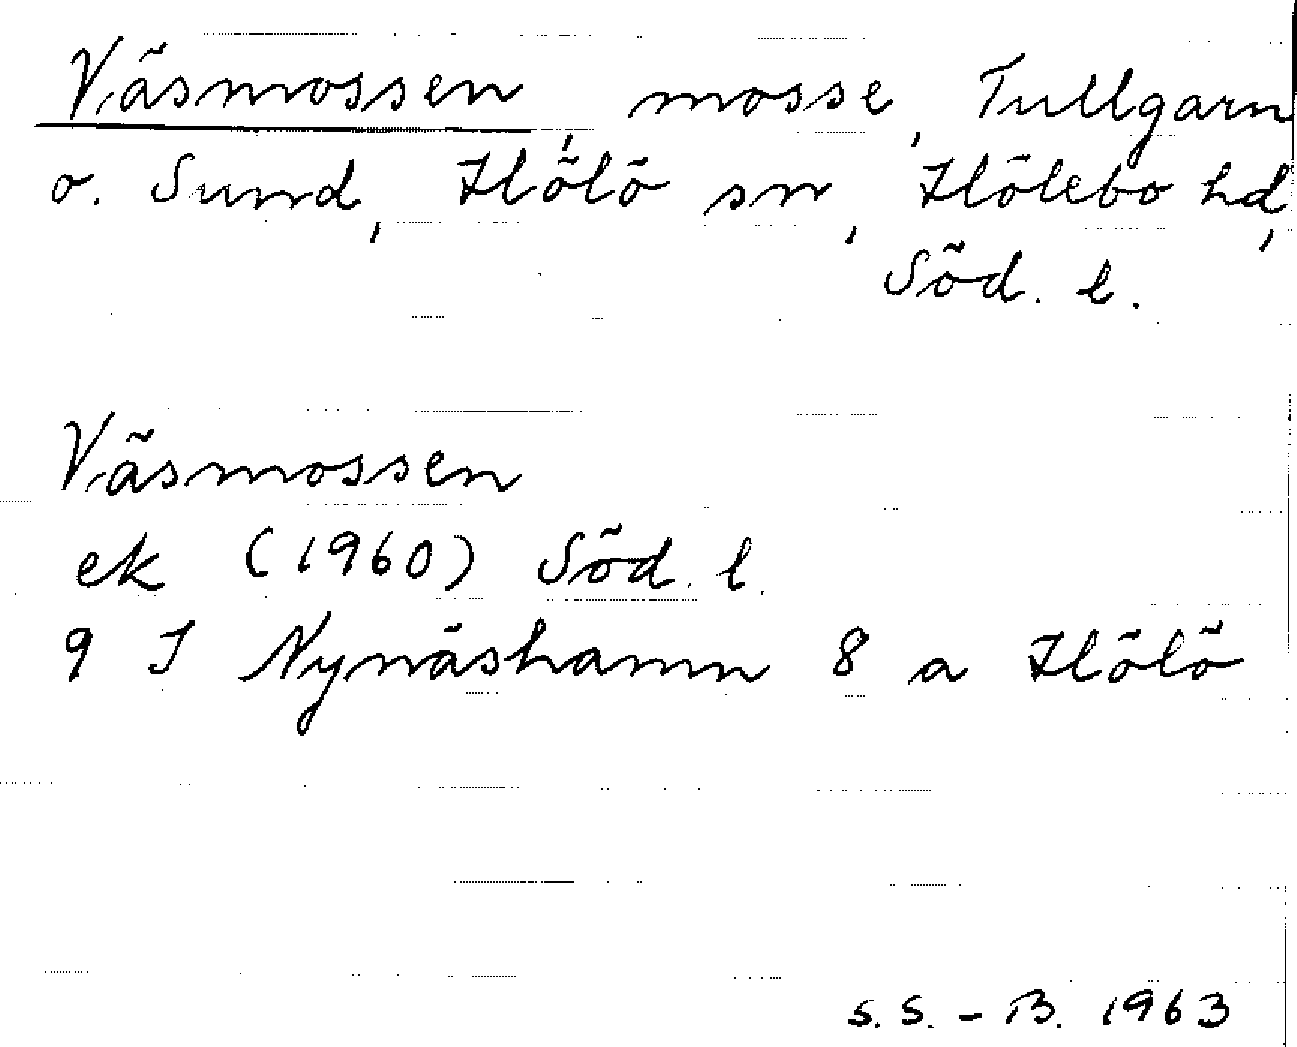 Väsmossen, mosse, Tullgarn
o. Sund, Hölö sn, Hölebo hd,
Söd. l.
Väsmossen
ek (1960) Söd. l.
9 I Nynäshamn 8 a Hölö
S.S.-B. 1963